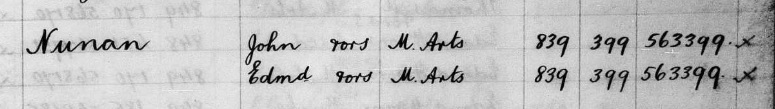 Nunan John & ors M. Arts 839 399 563399. x
Edmd & ors M. Arts 839 399 563399. x